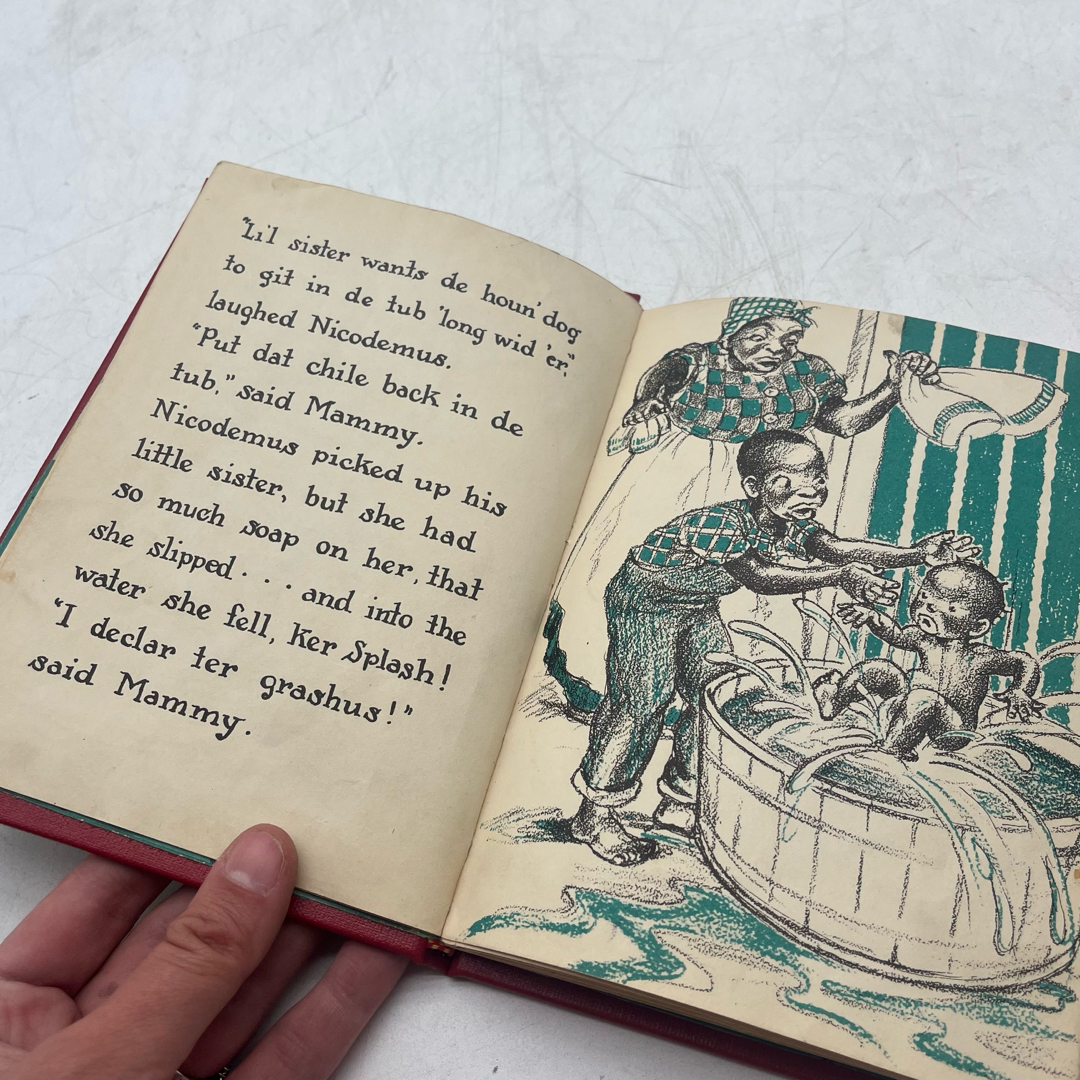 "Li'l sister wants de houn' dog
to git in de tub 'long wid 'er,"
laughed Nicodemus.
"Put dat chile back in de
tub," said Mammy.
Nicodemus picked up his
little sister, but she had
so much soap on her, that
she slipped . . . . and into the
water she fell, Ker Splash!
"I declar ter grashus!"
said Mammy.